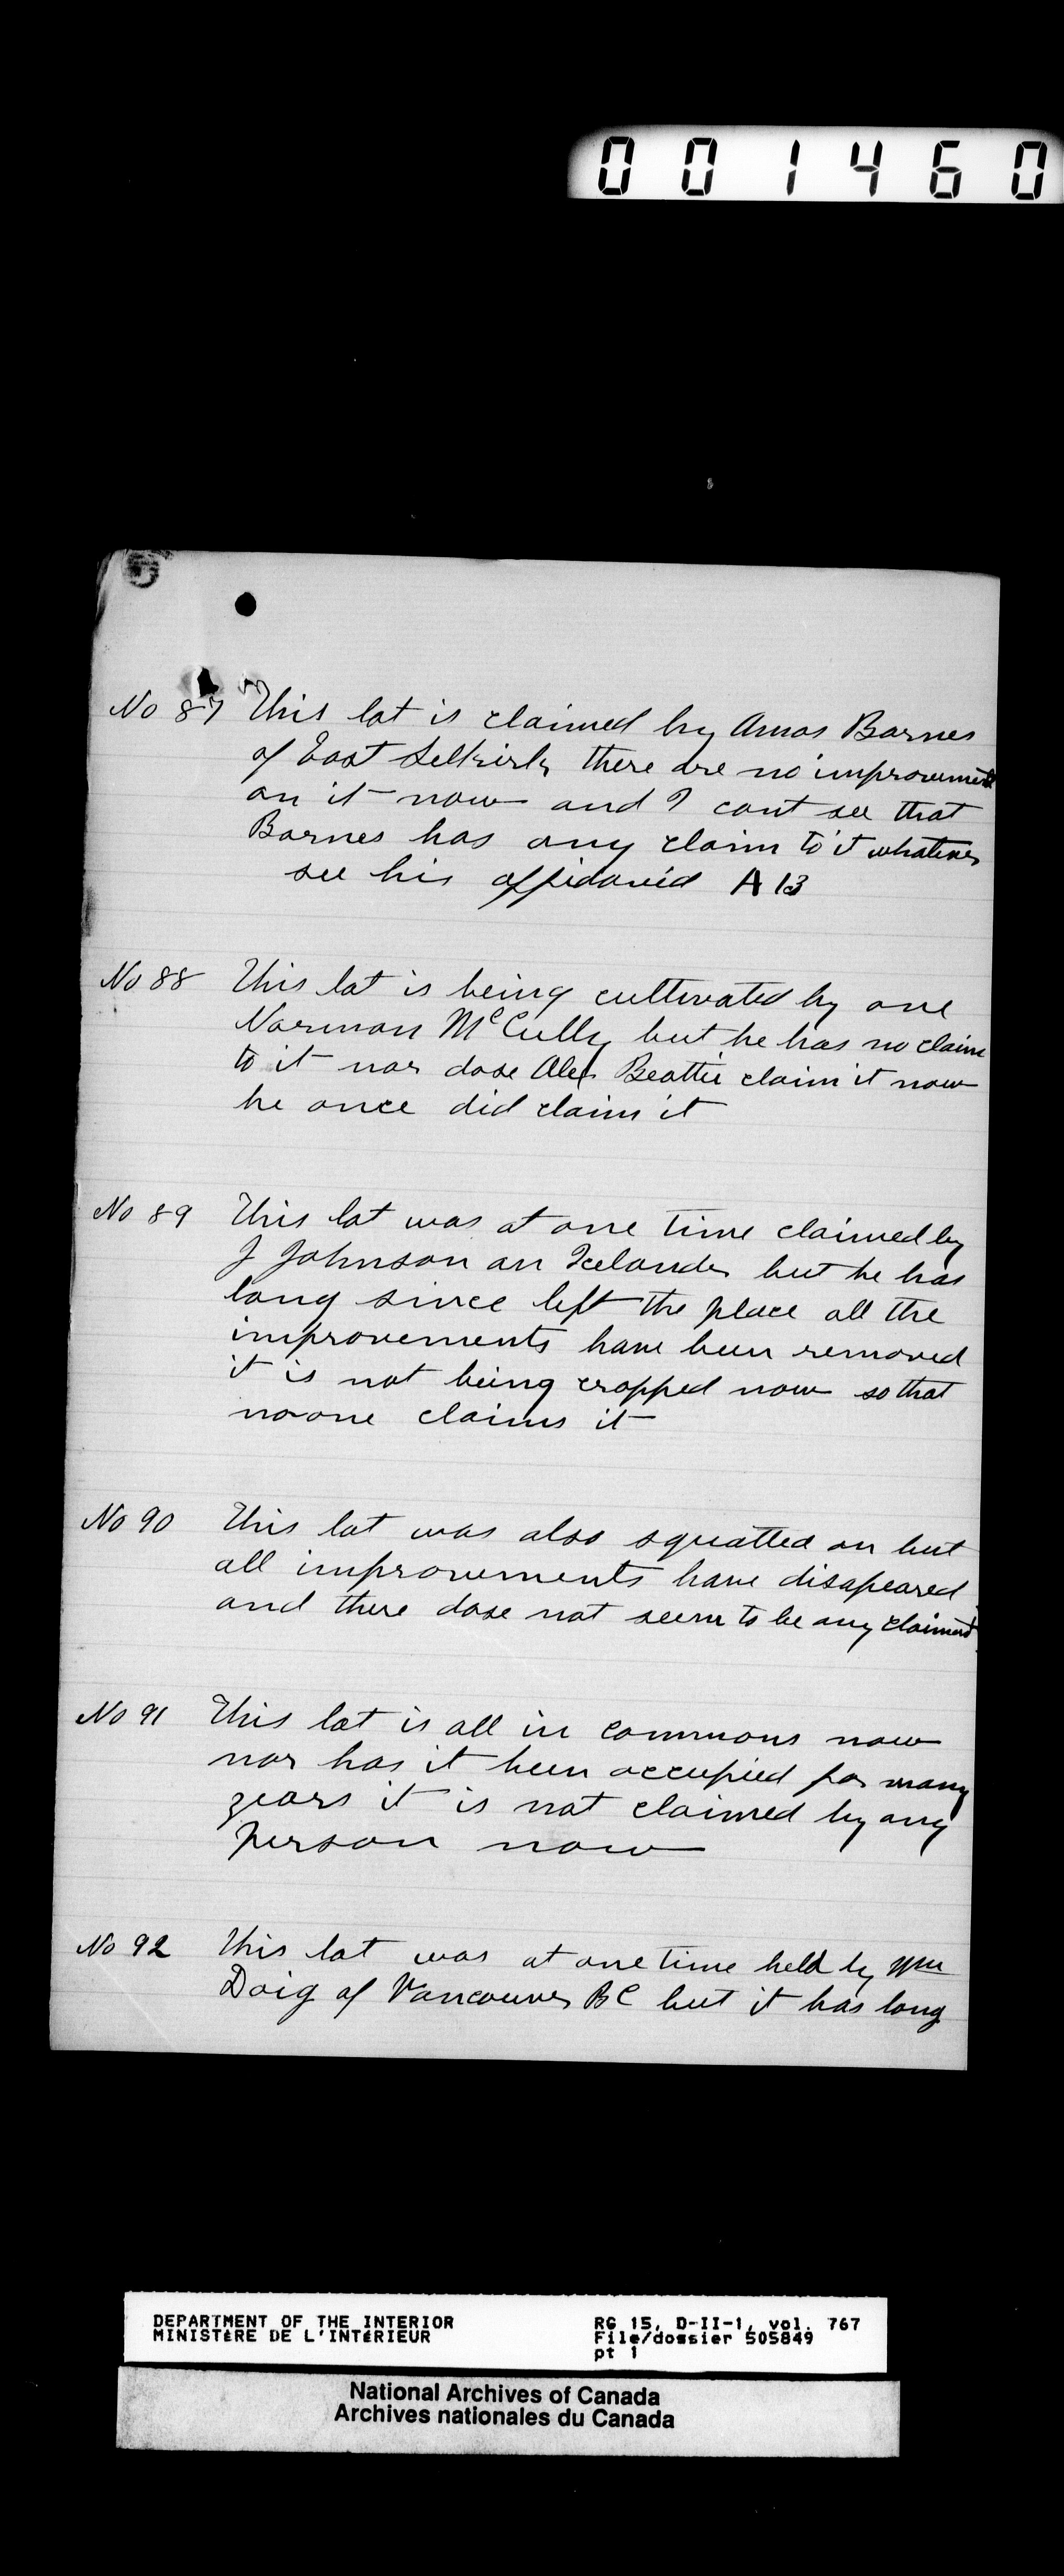 001460
5
No 87 This lot is claimed by Amos Barnes
of East Selkirk there are no improvements
on it now and I cant see that
Barnes has any claim to it whatever
see his affidavid A 13
No 88 This lot is being cultivated by one
Norman McCully but he has no claim
to it nor dose Alex Beattie claim it now
he once did claim it
No 89 This lot was at one time claimed by
J Johnson an Icelander but he has
long since left the place all the
improvements have been removed
it is not being cropped now so that
no one claims it
No 90 This lot was also squatted on but
all improvements have disapeared
and there dose not seem to be any claimant
No 91 This lot is all in commons now
nor has it been occupied for many
years it is not claimed by any
person now
No 92 This lot was at one time held by Wm
Doig of Vancouver BC but it has long
DEPARTMENT OF THE INTERIOR RG 15, D-II-1, vol. 767
MINISTÈRE DE L'INTÉRIEUR File/dossier 505849
pt 1
National Archives of Canada
Archives nationales du Canada